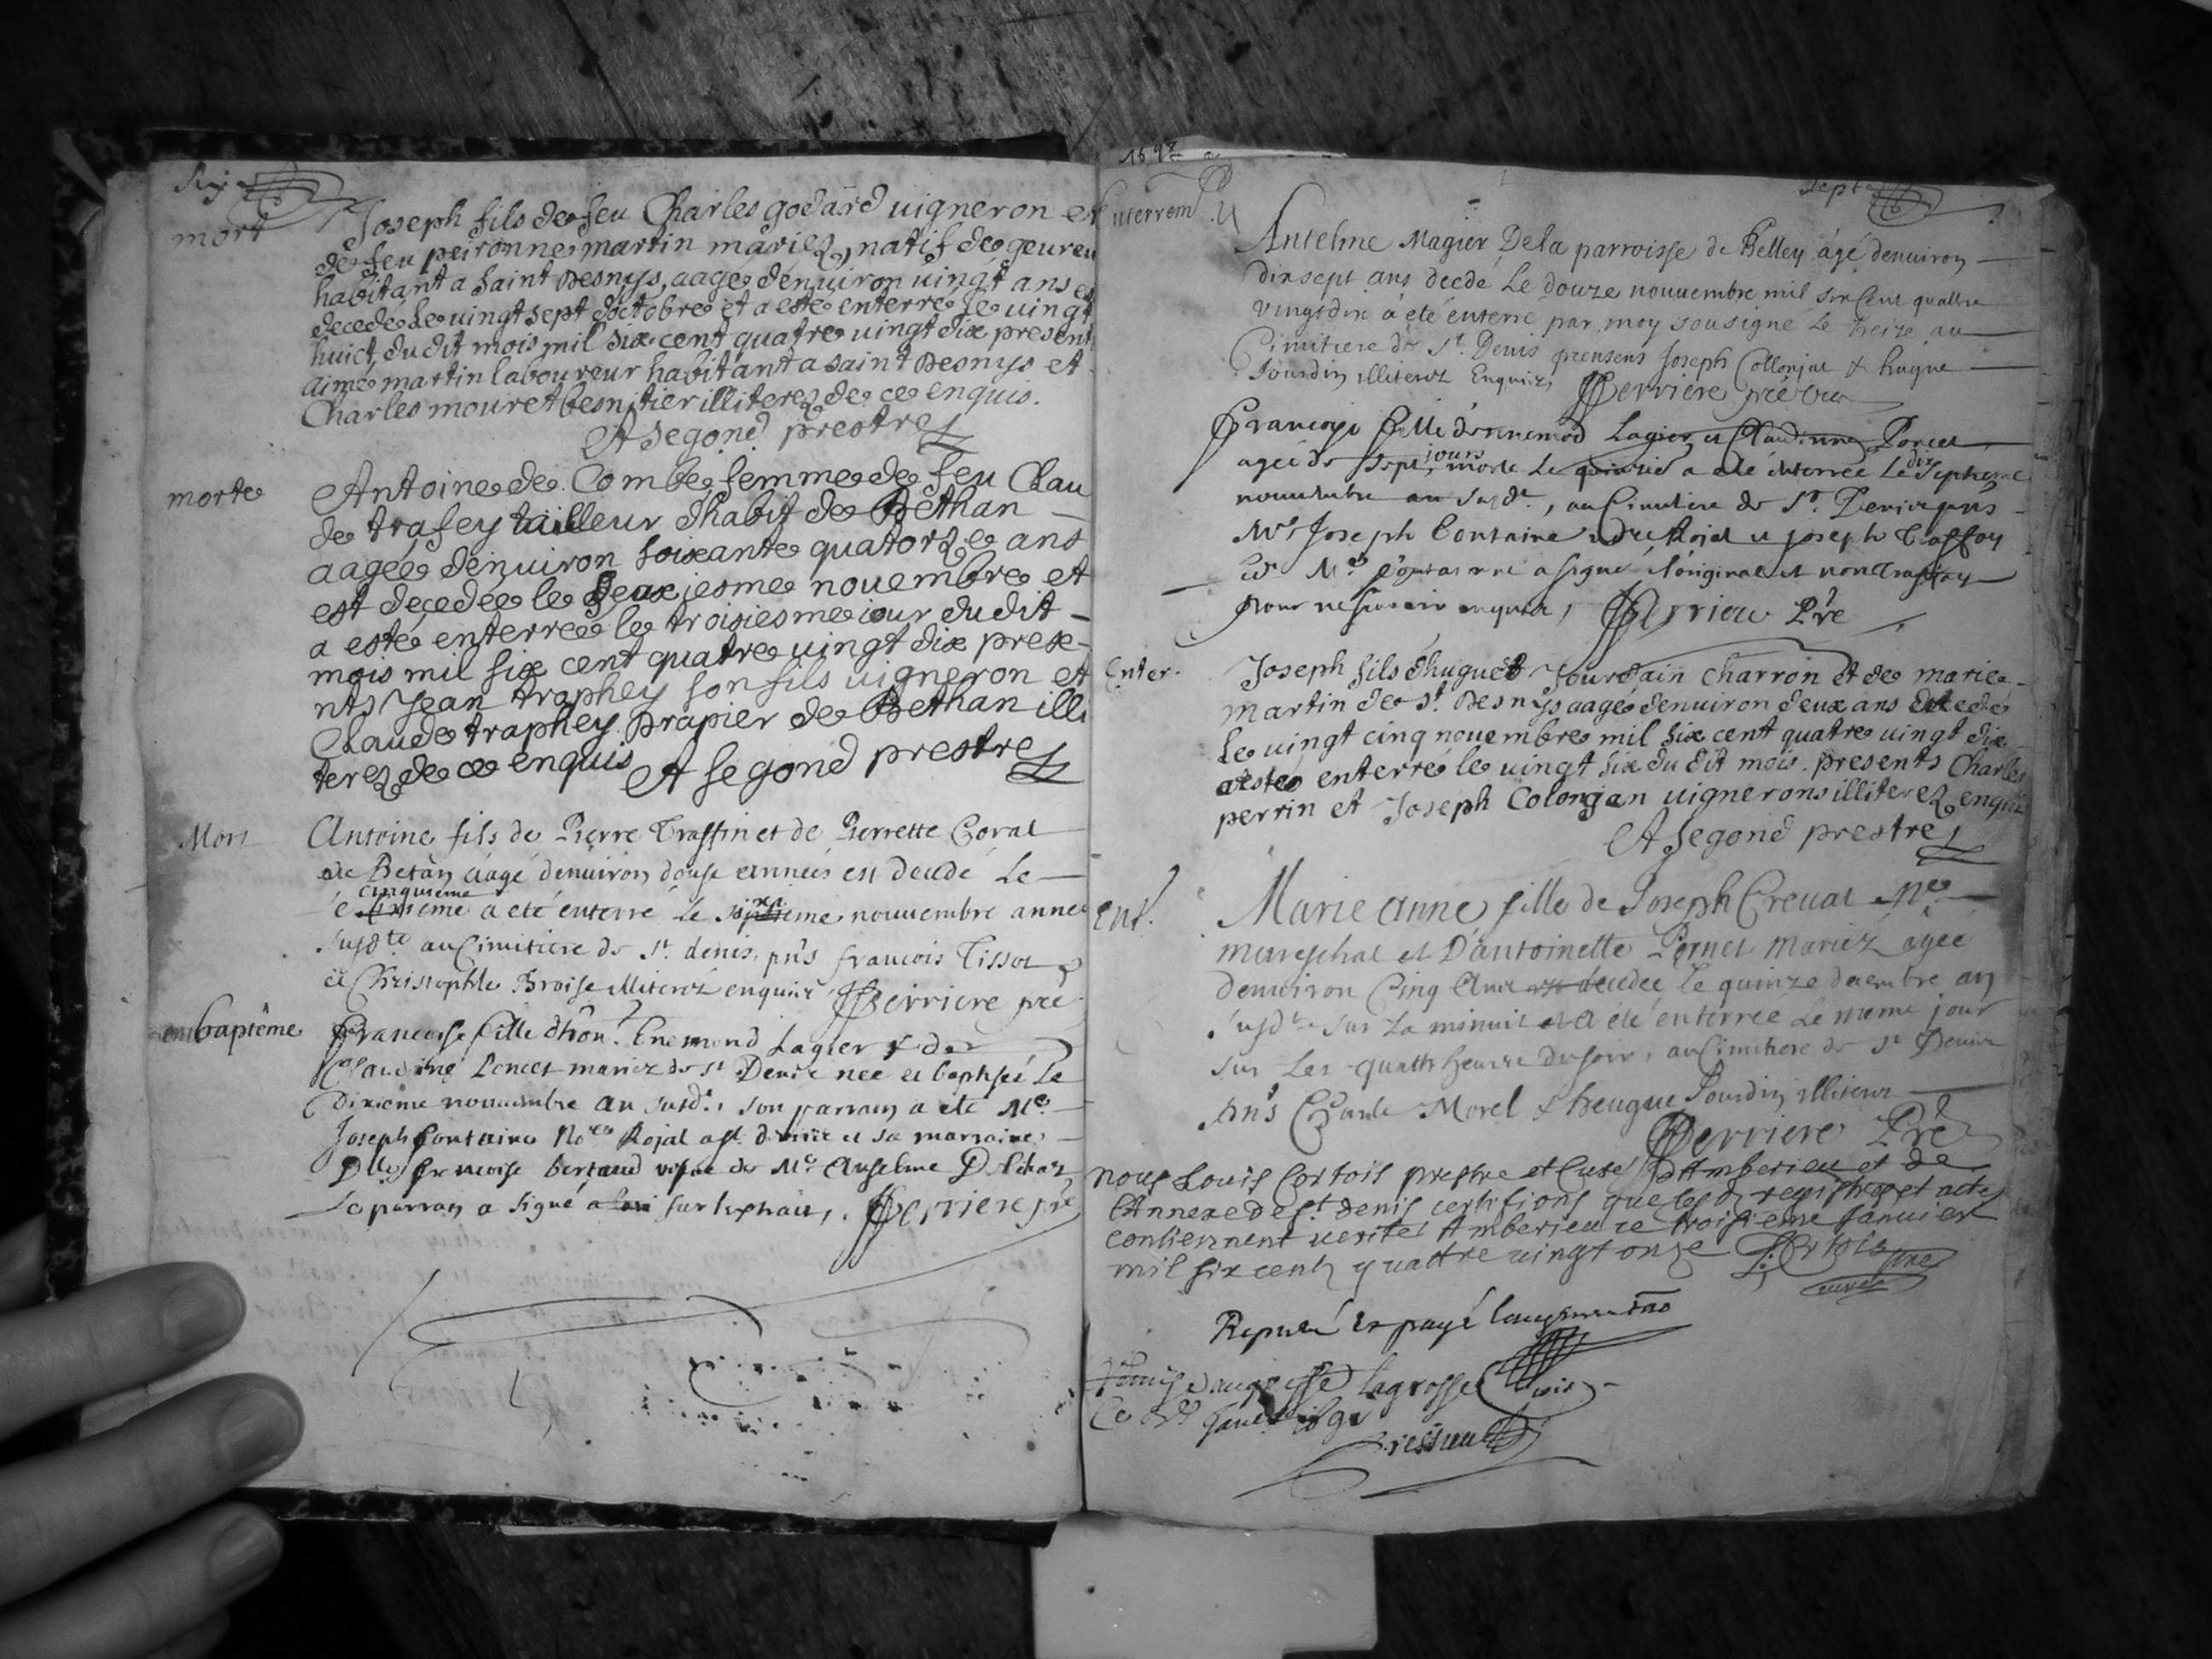 Six
mort
Joseph fils de feu Charles godard uigneron et
de feu peironne martin mariez, natif de geureu
habitant a saint Desnys, aage denuiron uingt ans et
decede le uingt sept doctobre et a este enterré le uingt
huict, du dit mois mil six cent quatre uingt dix present
aimé martin laboureur habitant a saint Desnys et
Charles mouret besnitier illiterez de ce enquis.
A Segond prestre
morte
Antoine de Combe femme de feu Clau
de trafey tailleur dhabit de Bethan
aagée denuiron soixante quatorze ans
est decedée le deuxiesme nouembre et
a esté enterree le troisiesme iour du dit
mois mil six cent quatre uingt dix prese-
nts Jean traphey son fils uigneron et
Claude traphey drapier de Bethan illi
terez de ce enquis A Segond prestre
Mort
Antoine fils de Pierre Traffin et de Pierrette Coral
de Betan áagé denuiron douse années est decedé Le
cinquieme
a eté énterré lé nouuembre anneé
susdte au Cimitiere de St. denis, pn̄s francois Tissot
et Christophle Broise illiteréz enquiz Perriere pre
baptême
Francoise fille dhon. Enemond Lagier & de
Claudine Poncet mariez de St Denis née et baptisée Le
dixieme nouuembre an susd., son parrain a eté Me.
Joseph Fontaine Nore Rojal aud. denis et sa marraine
Dlle Francoise bertaud vefue de Me. Anselme
Le parrain a signé sur lextrait, Perriere pre
1690
Septe
Enterrem
Antelme Magier De la parroisse de Belley ágé denuiron
dix sept ans decdé Le douze nouuembre mil six Cent quattre
vingt dix à été enterré par moy sousigné Le treize au
Cimitiere de St. Denis presens Joseph Collonjat & hugue
Jourdin illiterez Enquiz, Perriere prétre
Francoise fille denemod Lagier et Claudinne Poncet
ageé de sept jours, morte Le a eté énterrée Le dix septieme
nouembre an susdt., au Cimitiere de St. Denis pn̄s
Me Joseph Fontaine ndre Rojal et joseph Traffay
Led Me. fontainne a signé lóriginal et non Traffay
pour ne scauoir enquiz, Perriere Pre
Enter.
Joseph fils dhuguet Jourdain charron et de marie
martin de St. Desnys aagé denuiron deux ans decedé
le uingt cinq nouembre mil six cent quatre uingt dix
a esté enterré le uingt six du dit mois. presents Charles
perrin et Joseph Colonjan uignerons illiterez enquis
A Segond prestre
Ent.
Marie anne fille de Joseph Creuat Me
mareschal et D'antoinette Pernet mariéz ágeé
denuiron Cinq Ans est decedeé le quinze decembre an
susdt. sur La minuit et a eté enterreé Lé méme jour
sur Les quattr heures du soir, au Cimitiere de St Denis
pn̄s Claude Morel & heugue Jourdin illiterez
Perriere Pre
nous Louis Cortois prestre et Curé dAmberieu et de
lAnnexe de St. denis certifions que les registres et actes
contiennent uerité Amberieu ce troisieme januier
mil six cents quattre uingt onze L. Cortois pre
curé
et payé
Ce janu. 1691